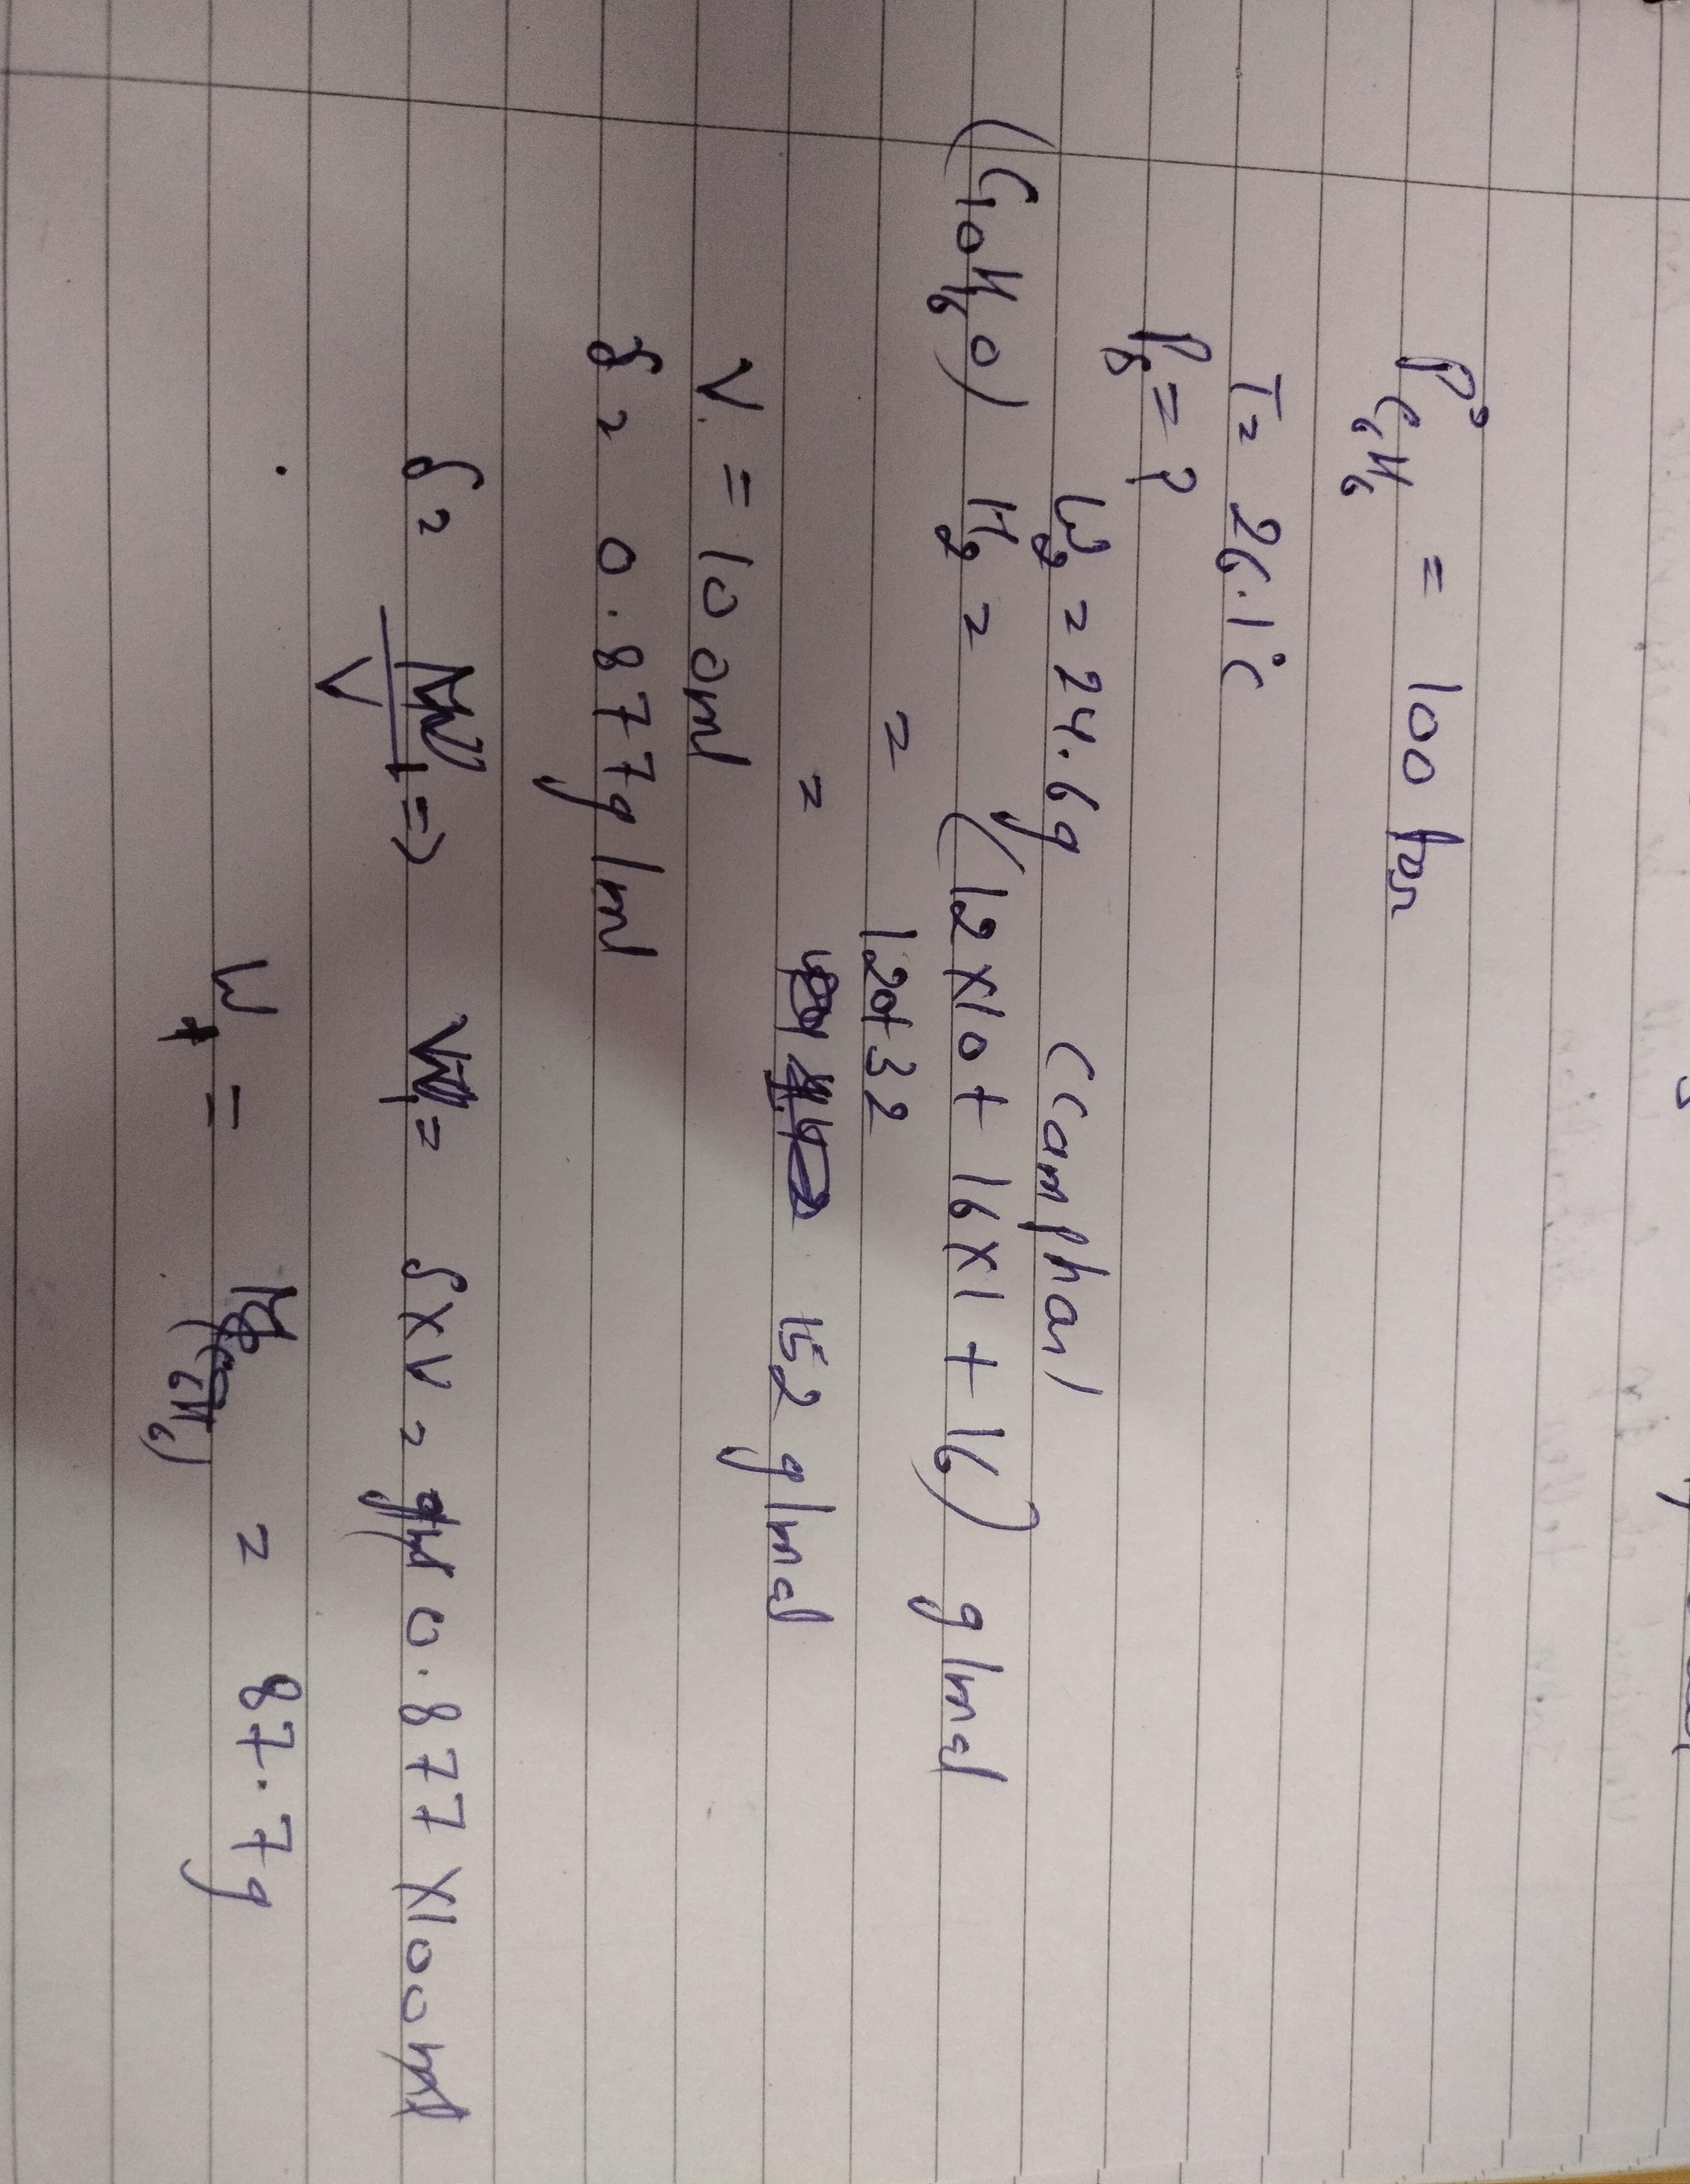 P°C₆H₆ = 100 torr
T = 26.1°C
Pₛ = ?
W₂ = 24.6g (Camphor)
(C₁₀H₁₆O) M₂ = (12×10+16×1+16) g/mol
= 120+32
= 152 g/mol
V = 100ml
δ = 0.877g/ml
δ = W/V => W₁ = δ×V = 0.877×100ml
W₁ = (C₆H₆) = 87.7g